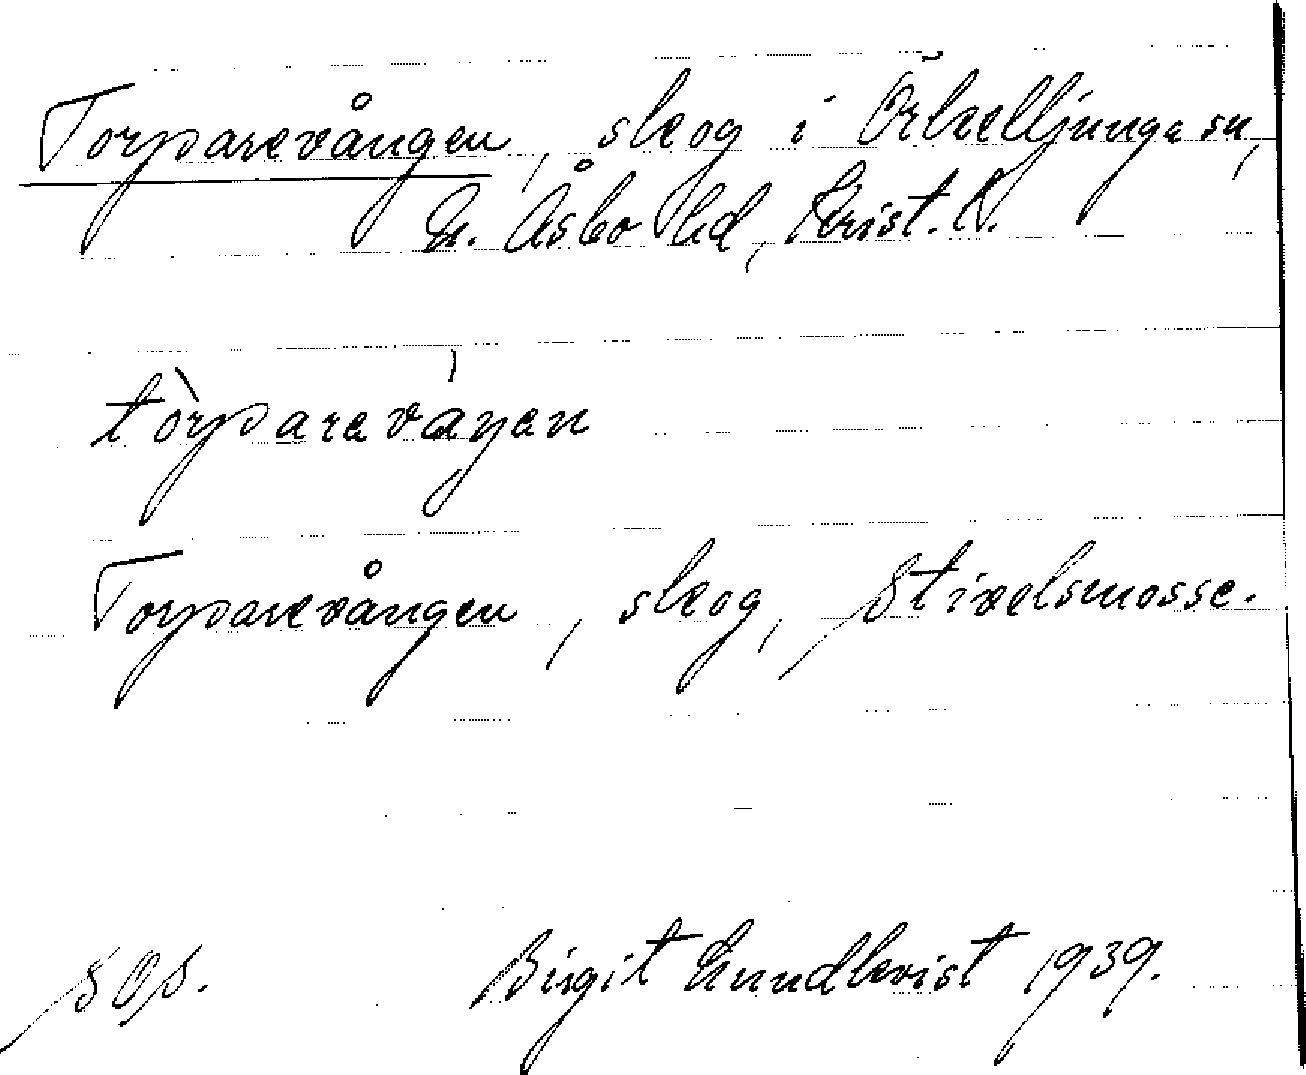 Torparevången, skog i Örkelljunga sn,
N. Åsbo hd, Krist. l.
tòrparaváŋen
Torparevången, skog, Stivelsmosse.
SOS. Birgit Lundkvist 1939.